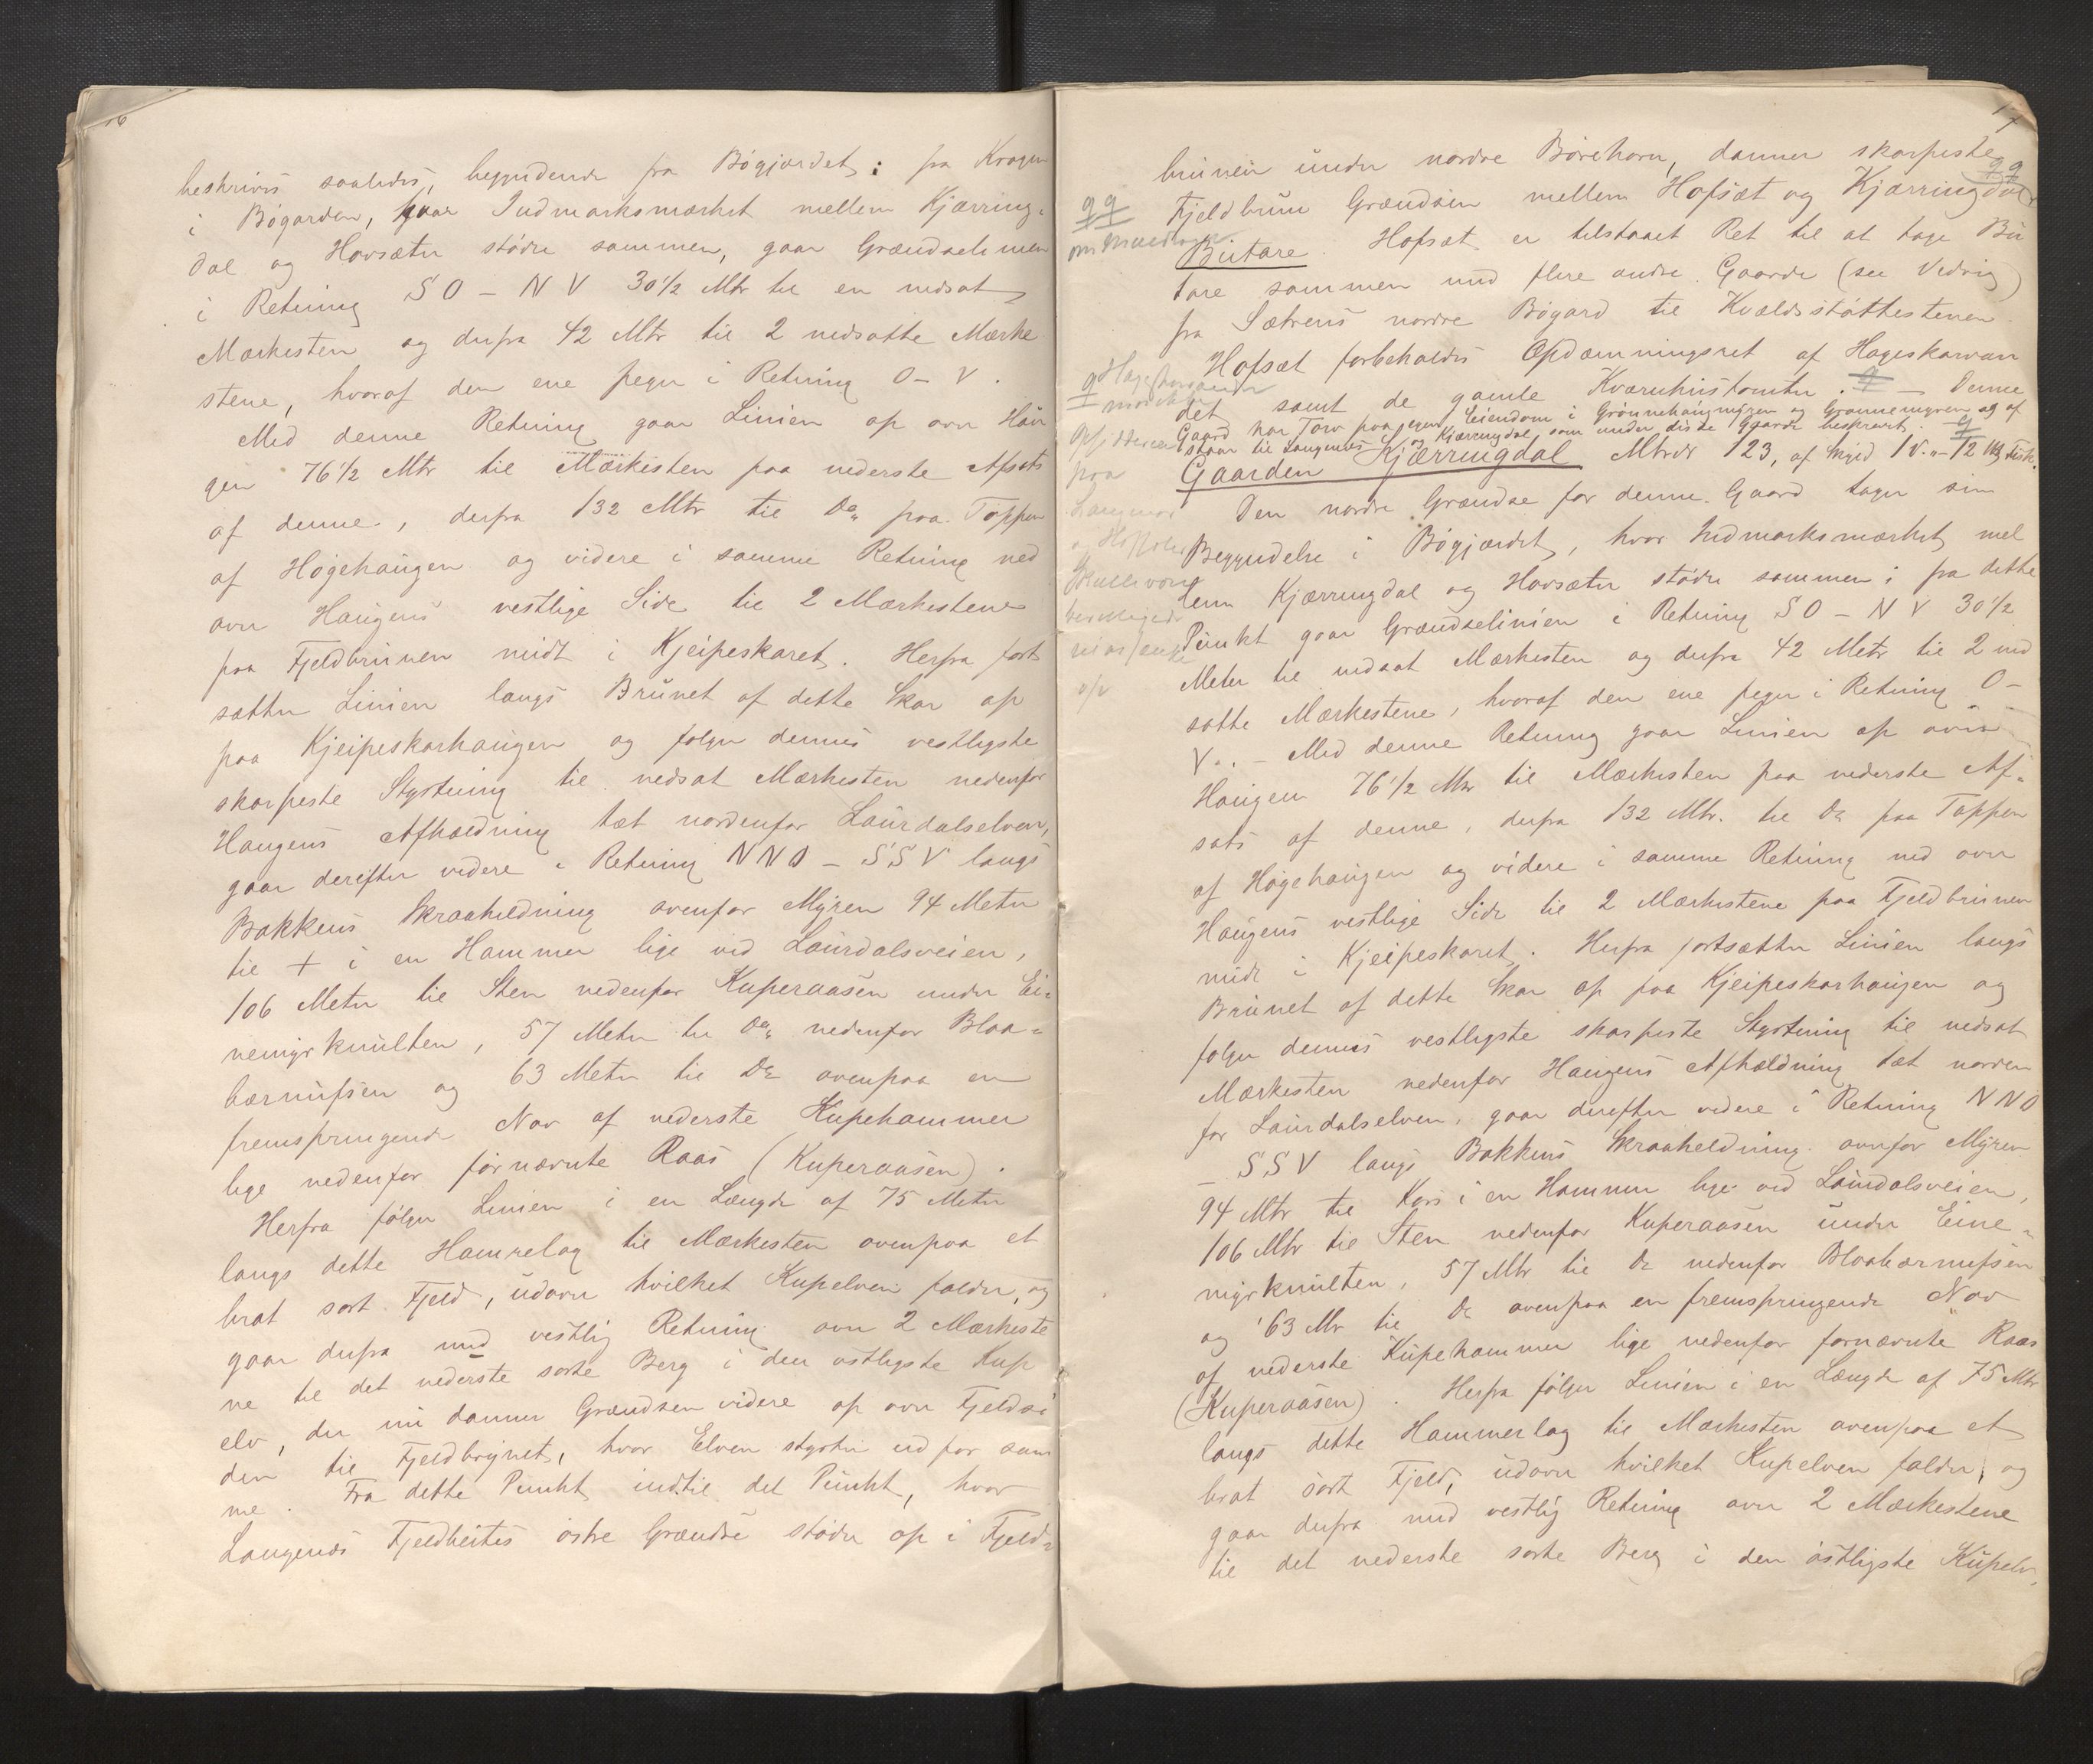 16
beskrives saaledes, begyndende fra Bøgjærdet: fra Kragen
i Bøgarden, hvor Indmarksmærket mellem Kjærring-
dal og Hovsæter støder sammen, gaar Grændselinien
i Retning SO - NV 30½ Mtr til en nedsat
Mærkesten og derfra 42 Mtr til 2 nedsatte Mærke
stene, hvoraf den ene peger i Retning O - V.
Med denne Retning gaar Linien op over Hau
gen 76½ Mtr til Mærkesten paa nederste Afsats
af denne, derfra 132 Mtr til Do paa Toppen
af Høgehaugen og videre i samme Retning ned
over Haugens vestlige Side til 2 Mærkestene
paa Fjeldbrunen midt i Kjeipeskaret. Herfra fort
sætter Linien langs Brunet af dette Skar op
paa Kjeipeskarhaugen og følger dennes vestligste
skarpeste Styrtning til nedsat Mærkesten nedenfor
Haugens Afhældning tæt nordenfor Laurdalselven,
gaar derefter videre i Retning NNO - SSV langs
Bakkens Skraaheldning ovenfor Myren 94 Meter
til + i en Hammer lige ved Laurdalsveien,
106 Meter til Sten nedenfor Kuperaasen under Ei-
nemyrknulten, 57 Meter til Do nedenfor Blaa-
bærnufsen og 63 Meter til Do ovenpaa en
fremspringende Nov af nederste Kupehammer
lige nedenfor førnævnte Raas (Kuperaasen).
Herfra følger Linien i en Længde af 75 Meter
langs dette Hamrelag til Mærkesten ovenpaa et
brat sort Fjeld, udover hvilket Kupelven falder, og
gaar derfra med vestlig Retning over 2 Mærkeste
ne til det nederste sorte Berg i den østligste Kup
elv, der nu danner Grændsen videre op over Fjeldsi
den til Fjeldbrynet, hvor Elven styrter ud for sam
me. Fra dette Punkt indtil det Punkt, hvor
Langenæs Fjeldbeites østre Grændse støder op i Fjeld-
17
brunen under nordre Børehorn, danner skarpeste
Fjeldbrun Grændsen mellem Hofsæt og Kjærringdal
Butare. Hofsæt er tilstaaet Ret til at tage Bu
tare sammen med flere andre Gaarde (see Vedvig)
fra Sætrens nordre Bøgard til Kvældsstøttestenen.
Hofsæt forbeholdes Opdæmningsret af Hageskarvan
det samt de gamle Kværnhustomter. - Denne
Gaard har Torv paa egen Eiendom i Grønnehaugmyren og Grønnemyren og af
staar til Langenæs og Kjærringdal, som under disse Gaarde beskrevet.
Gaarden Kjærringdal Mtr№ 123, af Skyld 1 V. - 12 Mk Fisk.
Den nordre Grændse for denne Gaard tager sin
Begyndelse i Bøgjærdet, hvor Indmarksmærket mel
lem Kjærringdal og Hovsæter støder sammen; fra dette
Punkt gaar Grændselinien i Retning SO - NV 30½
Meter til nedsat Mærkesten og derfra 42 Metr til 2 ned
satte Mærkestene, hvoraf den ene peger i Retning O -
V. - Med denne Retning gaar Linien op over
Haugen 76½ Mtr til Mærkesten paa nederste Af-
sats af denne, derfra 132 Mtr. til Do paa Toppen
af Høgehaugen og videre i samme Retning ned over
Haugens vestlige Side til 2 Mærkestene paa Fjeldbrunen
midt i Kjeipeskaret. Herfra fortsætter Linien langs
Brunet af dette Skar op paa Kjeipeskarhaugen og
følger dennes vestligste skarpeste Styrtning til nedsat
Mærkesten nedenfor Haugens Afhældning tæt norden
for Laurdalselven, gaar derefter videre i Retning NNO
- SSV langs Bakkens Skraaheldning ovenfor Myren
94 Mtr til Kors i en Hammer lige ved Laurdalsveien,
106 Mtr til Sten nedenfor Kuperaasen under Eine-
myrknulten, 57 Mtr til Do nedenfor Blaabærnufsen
og 63 Mtr til Do ovenpaa en fremspringende Nov
af nederste Kupehammer lige nedenfor fornævnte Raas
(Kuperaasen). Herfra følger Linien i en Længde af 75 Mtr
langs dette Hammerlag til Mærkesten ovenpaa et
brat sort Fjeld, udover hvilket Kupelven falder, og
gaar derfra med vestlig Retning over 2 Mærkestene
til det nederste sorte Berg i den østligste Kupelv,